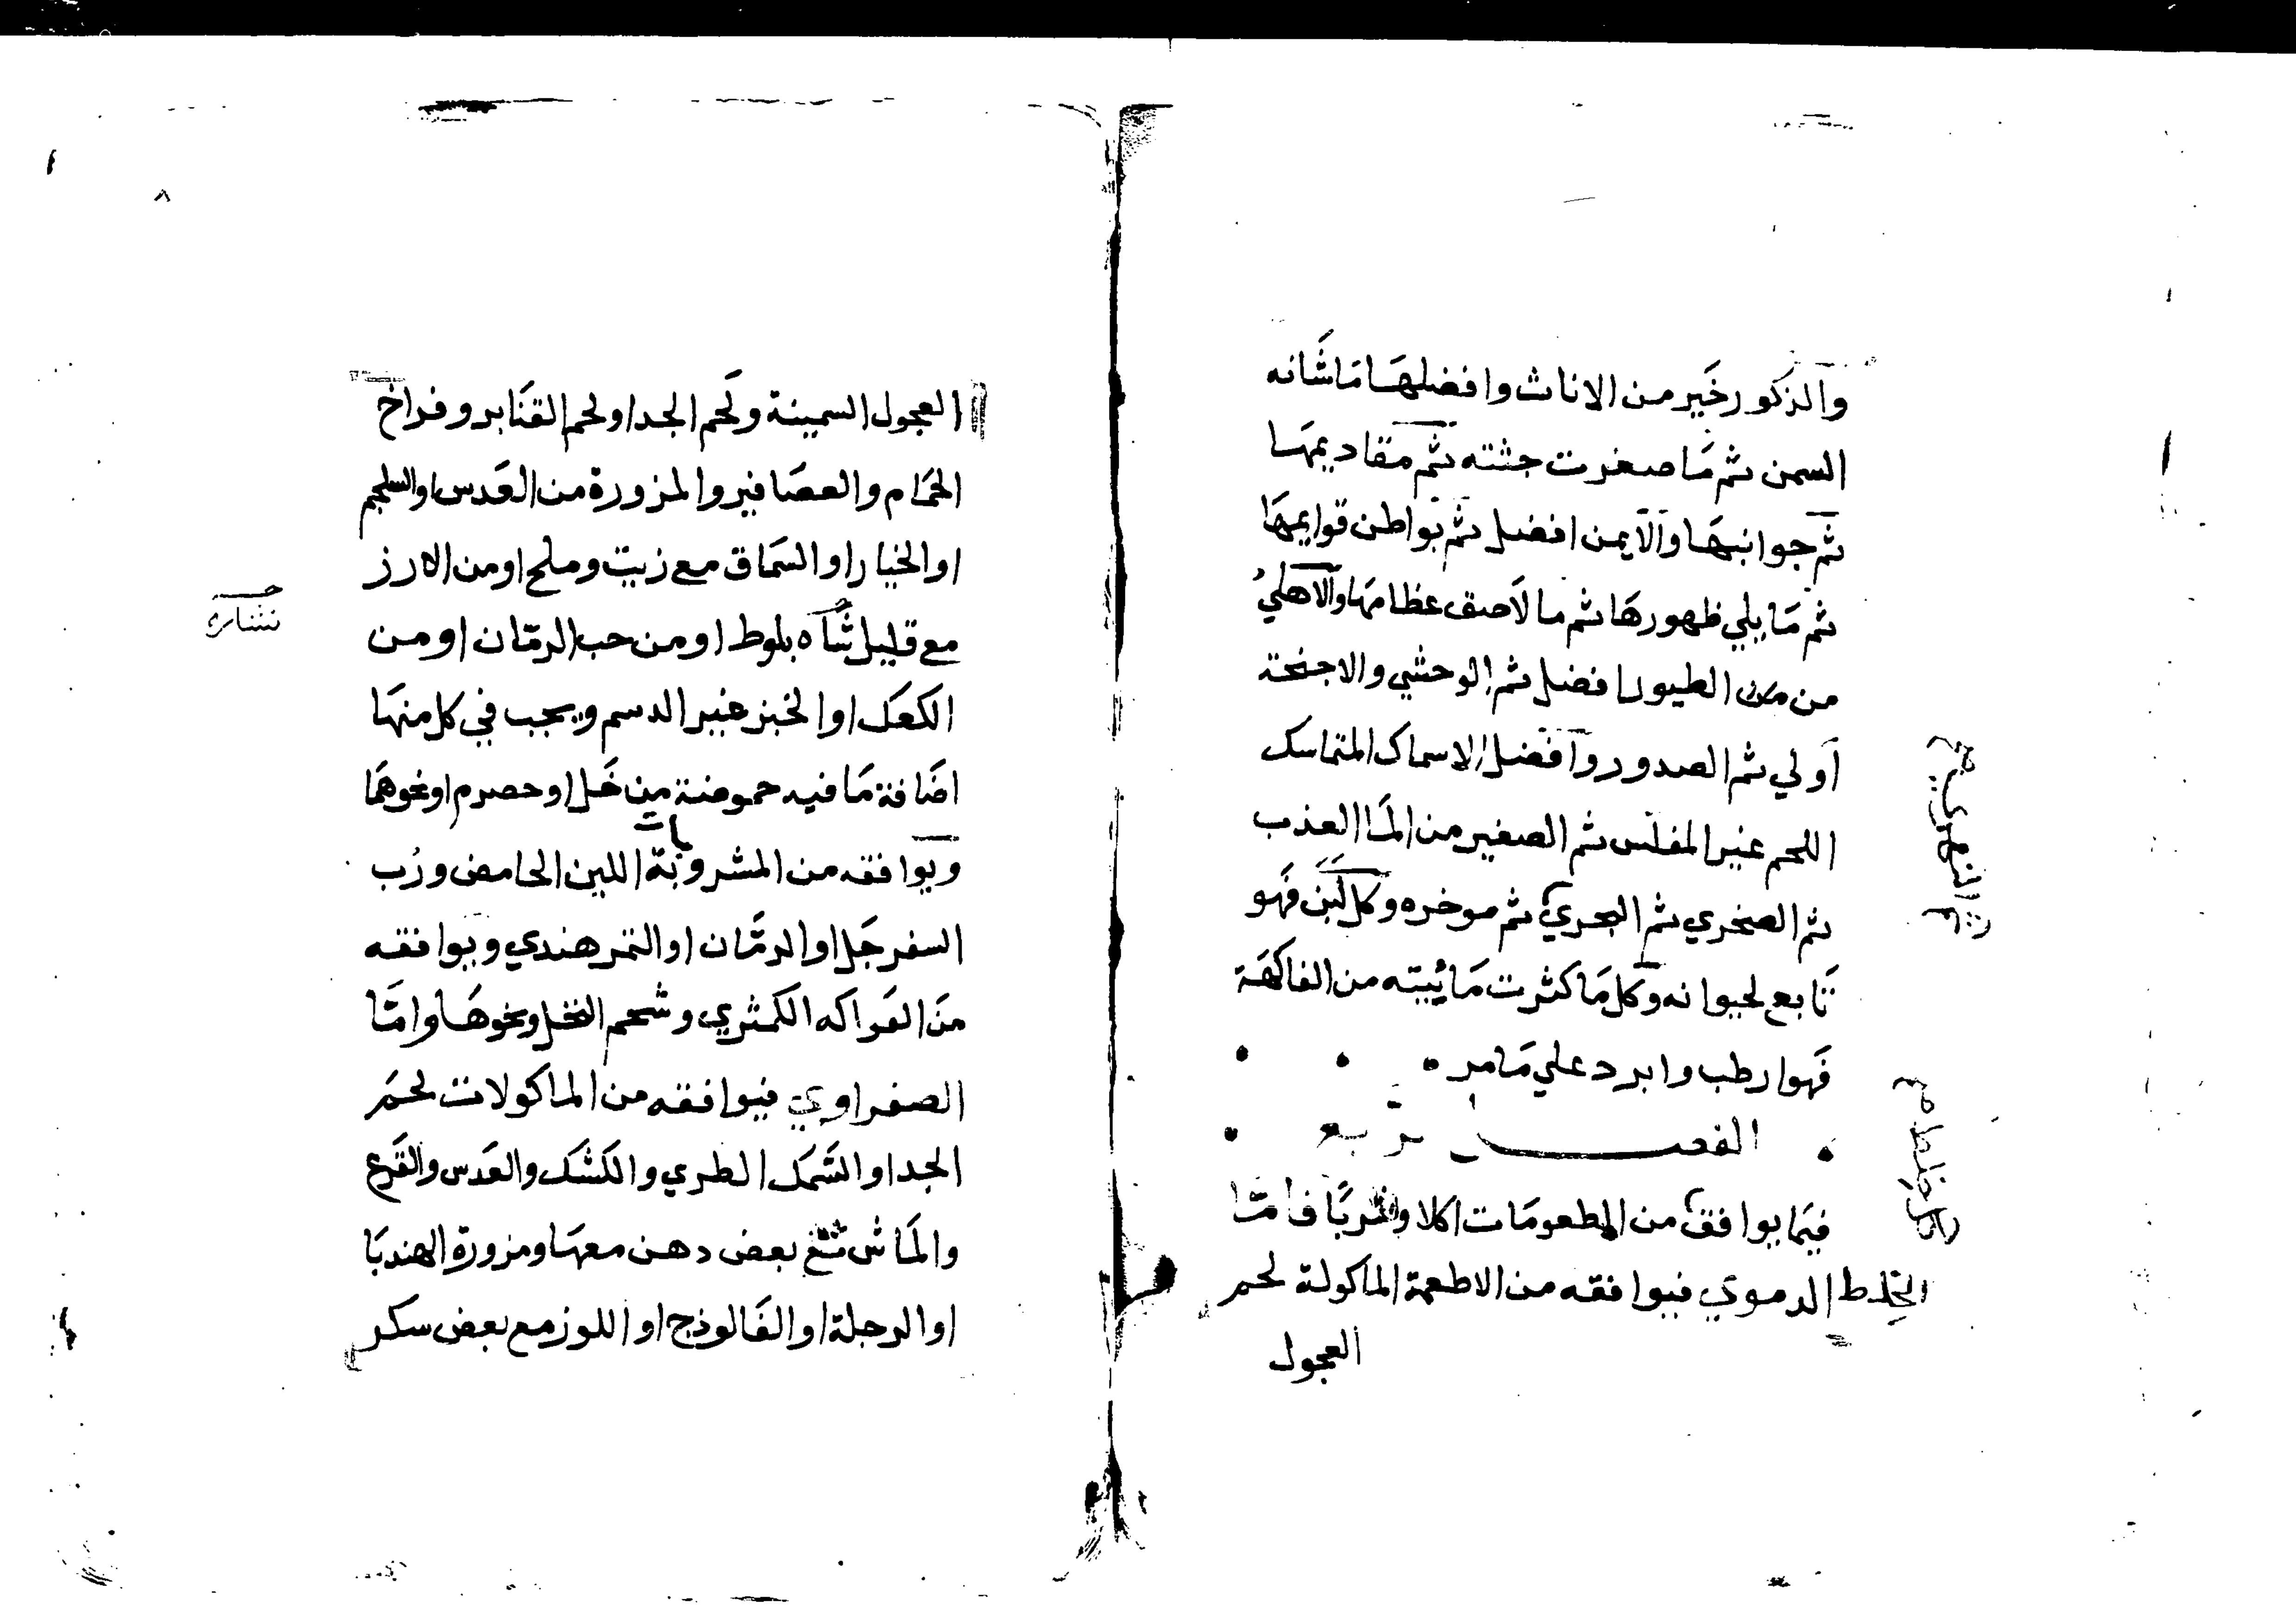 والذكور خَير من الاناث وافضلهَا مَا شَانه
السمن ثم مَا صغرت جثته ثم مقاديمهَا
ثم جوانبهَا والايمن افضل ثم بواطن قوايمهَا
ثم مَا يلي ظهورهَا ثم ما لاَصق عظامهَا والاهلي
من من الطيور افضل ثم الوحشي والاجنحة
اَولي ثم الصدور وافضل الاسماك المتماسك
اللحم غير المفلس ثم الصغير من المَا العذب
ثم الصخري ثم البحري ثم موخره وكل لَبَن فَهو
تَابع لحيوانه وكل مَا كثرت مَائيته من الفاكهَة
فَهو ارطب وابرد علي مَا مر ه
الفصل الرابع
فيمَا يوافق من المطعومَات اكلا وشربًا فامَّا
الخلط الدموي فيوافقه من الاطعمة الماكولة لحم
العجول
٨
العجول السمينة ولَحم الجدا ولحم القنَابر وفراخ
الحمَام والعصَافير والمزورة من العَدس او السلجم
او الخيار او السمَاق مع زيت وملح او من الارز
مع قليل شَاه بلوط او من حب الرمّان او من
الكعَك او الخبز غير الدسم ويجب في كل منهَا
اضَافة مَا فيه حموضة من خَل او حصرم او نحوهمَا
ويوافقه من المشروبة بات اللبن الحامض ورُب
السفرجَل او الرمَّان او التمر هندي ويوافقه
منَ الفَواكه الكمثري وشحم النخل ونحوهَا وامَّا
الصفراوي فيوافقه من الماكولات لحَم
الجدا والسَمَك الطري والكَشَك والعَدس والقَرع
والمَاش مع بعض دهن معهَا ومزورة الهندبَا
او الرجلة او الفَالوذج او اللوز مع بعض سكر
نشاره